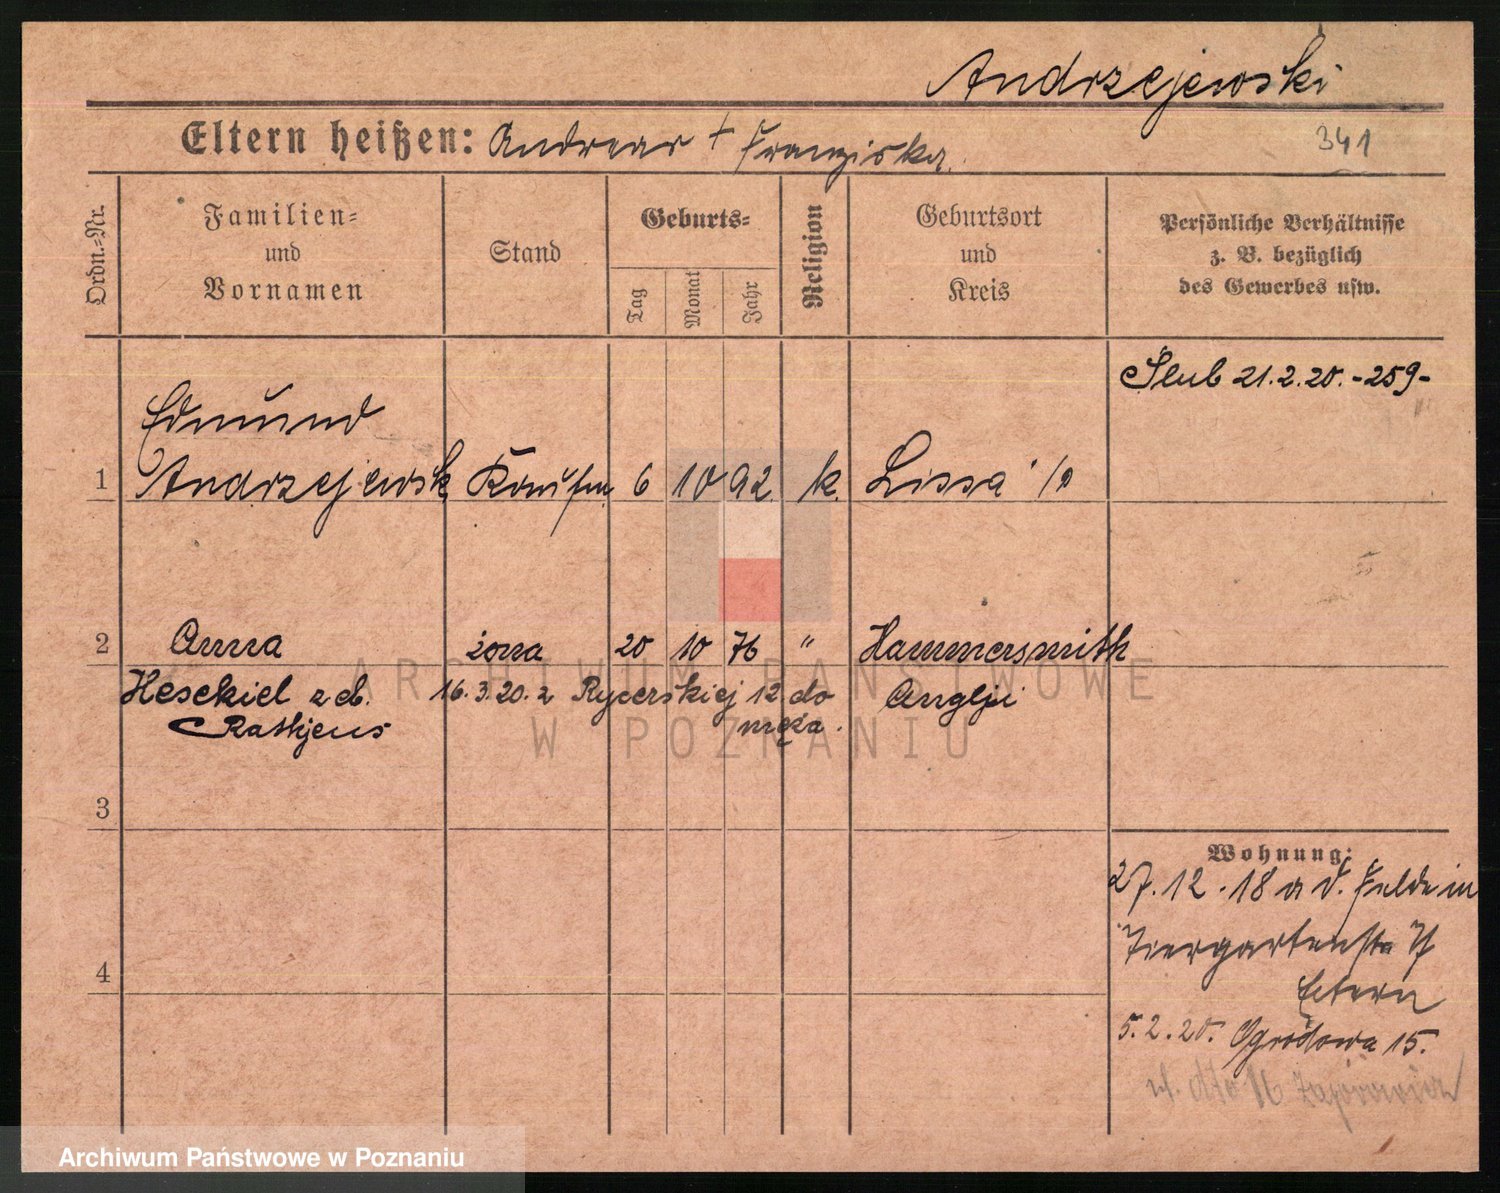 Andrzejewski
Eltern heißen: Andreas + Franziska.
341
Ordn.-Nr.
Familien-
und
Vornamen
Stand
Geburts-
Tag
Monat
Jahr
Religion
Geburtsort
und
Kreis
Persönliche Verhältnisse
z. B. bezüglich
des Gewerbes usw.
Ślub 21.2.20. -259-
Edmund
1 Andrzejewski Kaufm. 6 10 92. k. Lissa
2 Anna żona 20 10 76 " Hammersmith
Hesekiel z d. 16.3.20. z Rycerskiej 12 do Anglji
Rathjens męża.
3
4
Wohnung:
27.12.18 a d. Felde in
Tiergartenstr
Eltern
5.2.20. Ogrodowa 15.
ARCHIWUM PAŃSTWOWE
W POZNANIU
Archiwum Państwowe w Poznaniu